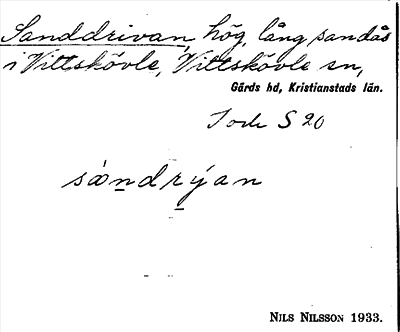 Sanddrivan, hög, lång sandås
i Vittskövle, Vittskövle sn,
Gärds hd, Kristianstads län.
S 20
sandrýan
NILS NILSSON 1933.